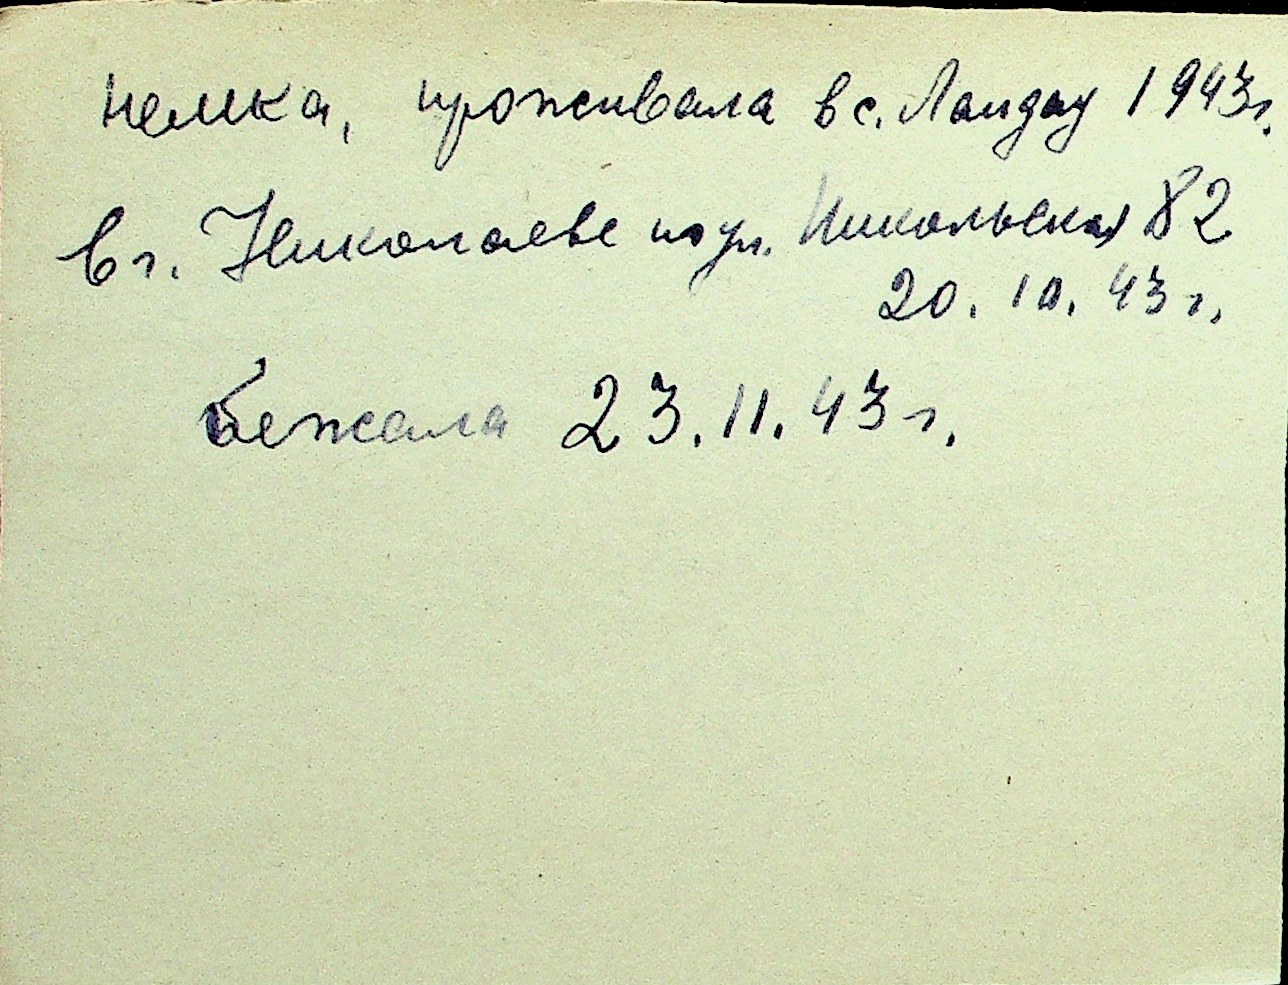 немка, проживала в с. Ландау 1943г.
в г. Николаеве по ул. Никольская 82
20. 10. 43 г.
Бежала 23. 11. 43 г.